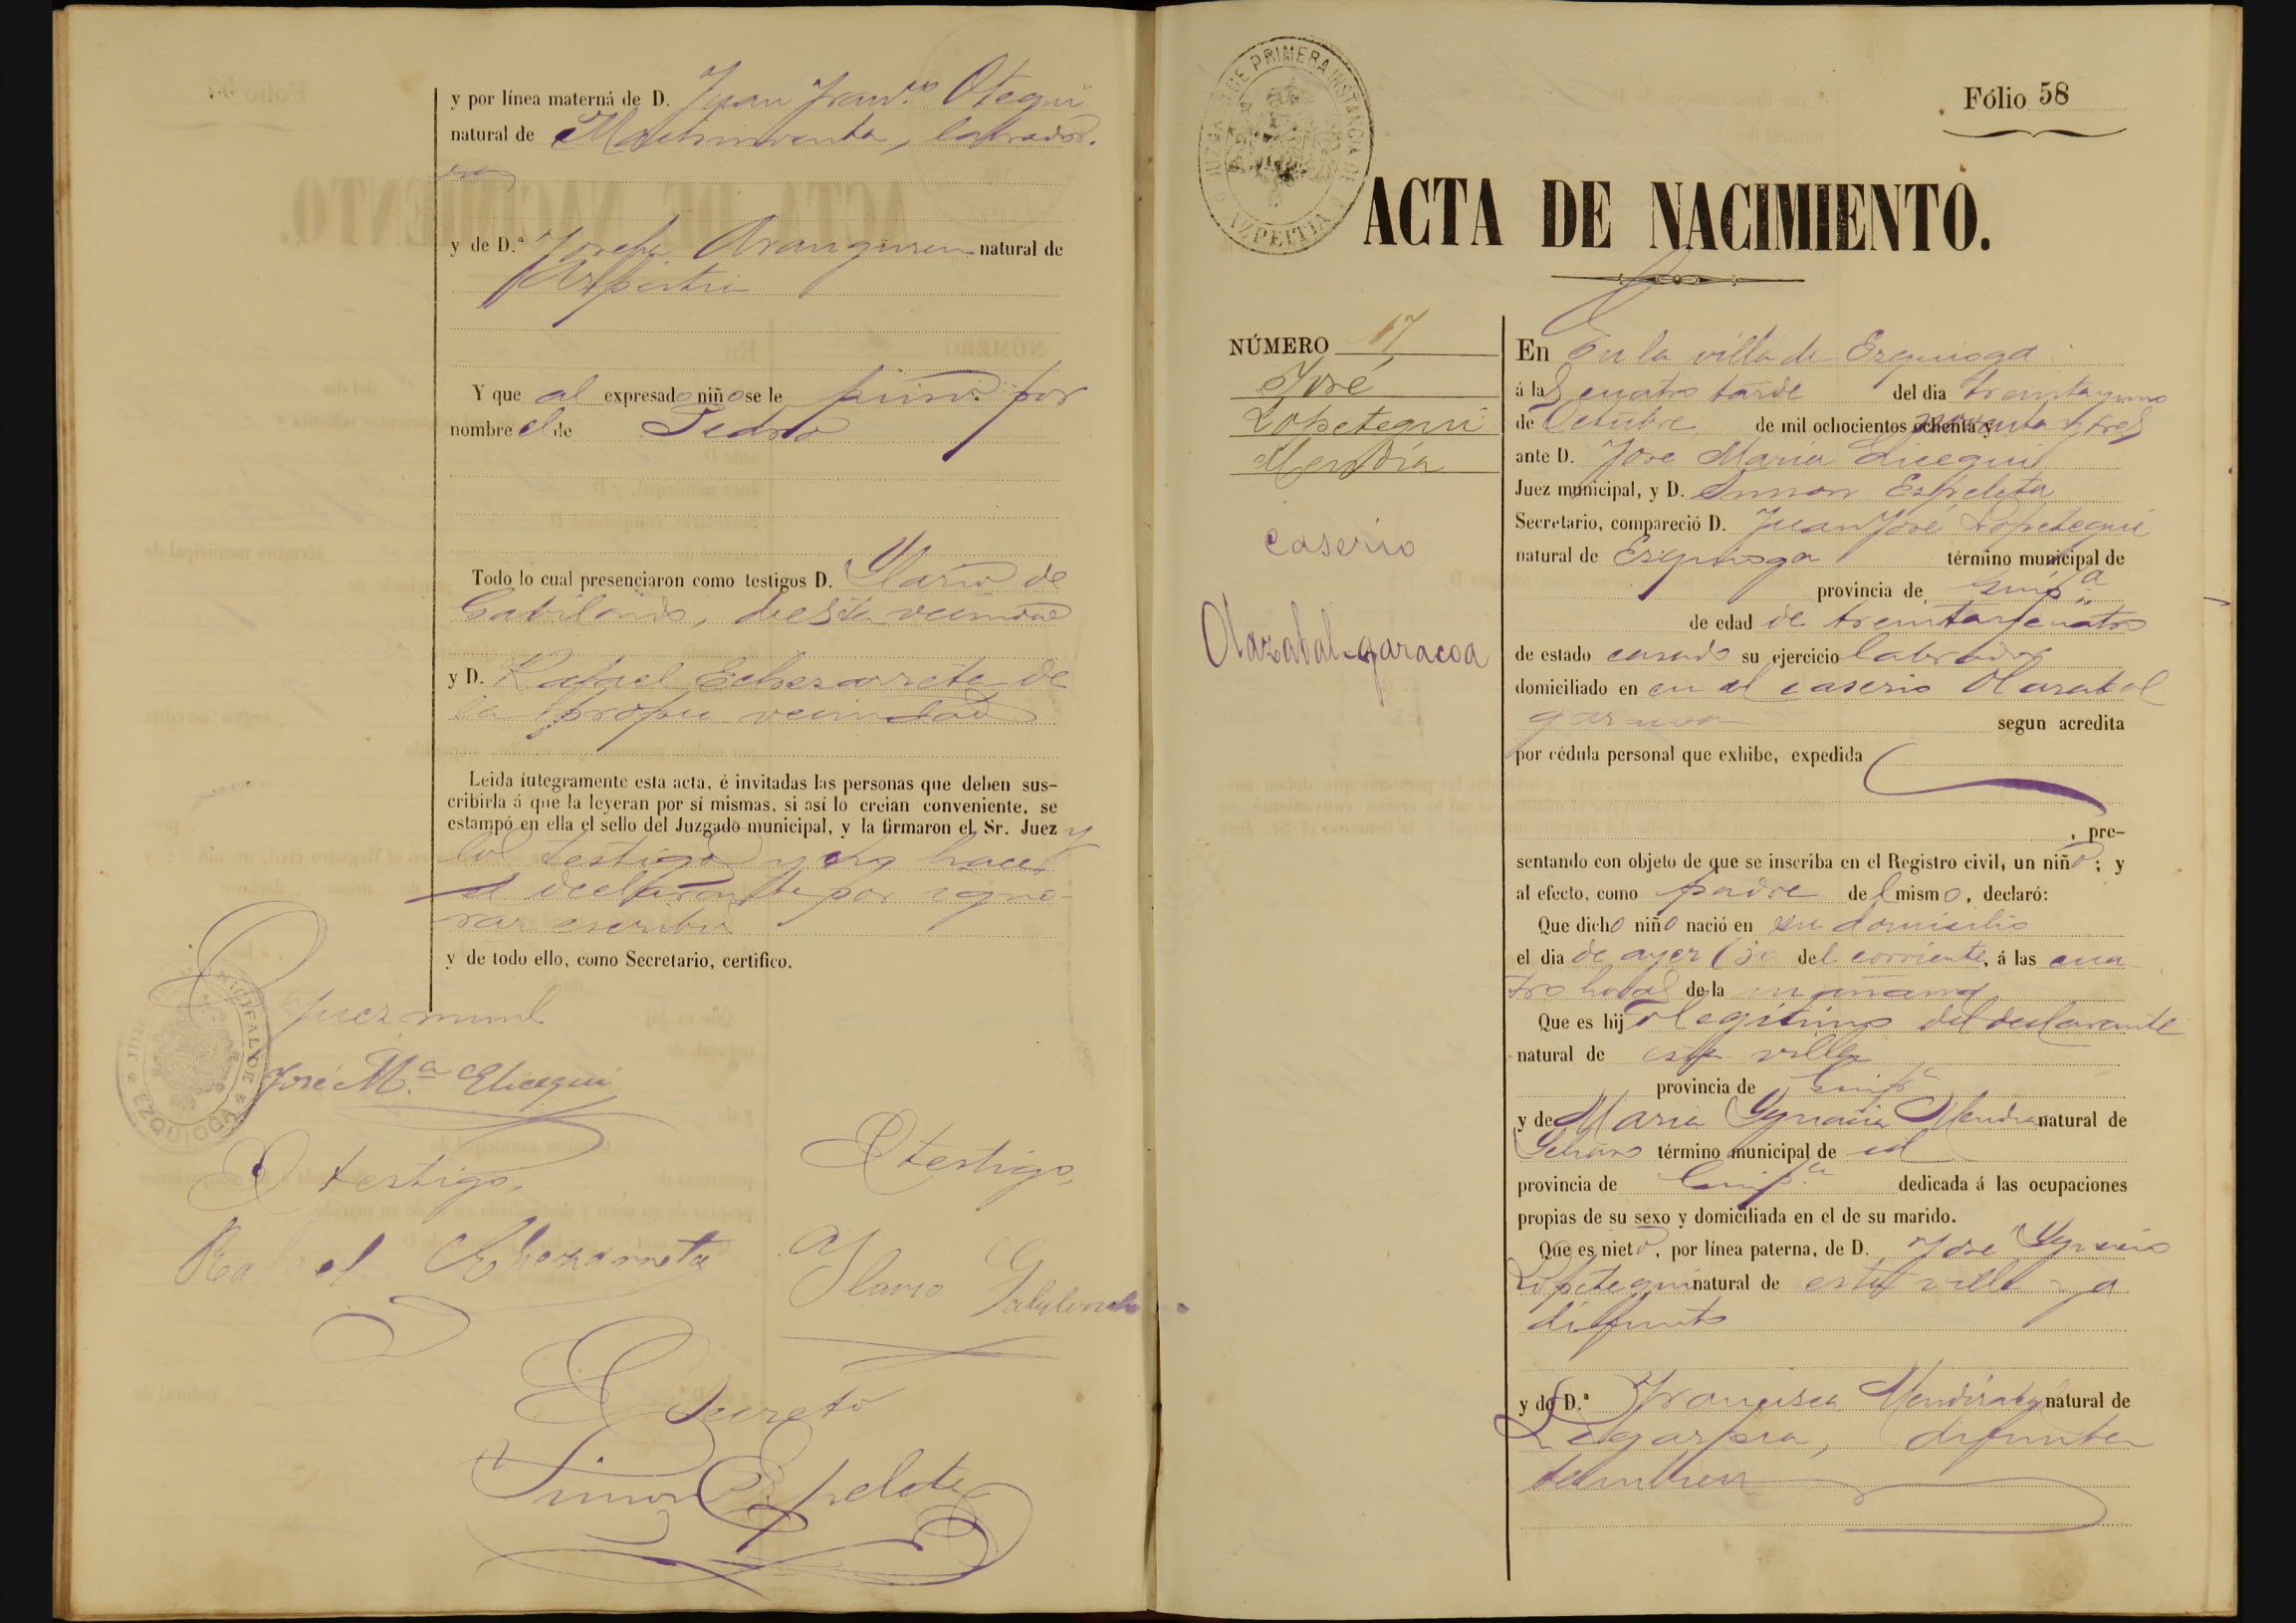 y por línea materná de D. Juan Fran.co Otegui
natural de Machinventa, labrador.
y de D.ª Josefa Aranguren natural de
Azpeitia
Y que al expresado niño se le puso por
nombre el de Pedro
Todo lo cual presenciaron como testigos D. Ylario de
Gabilondo, de esta vecindad
y D. Rafael Echezarreta de
la propia vecindad
Leida íntegramente esta acta, é invitadas las personas que deben sus-
cribirla á que la leyeran por sí mismas, si así lo creian conveniente, se
estampó en ella el sello del Juzgado municipal, y la firmaron el Sr. Juez y
los testigos y no hace
el declarante por igno-
rar escribir
y de todo ello, como Secretario, certifico.
El Juez munl
José M.ª Elicegui
El testigo,
El testigo,
Rafael Echezarreta
Ylario Gabilondo
El Secreto
Simon Espeleta
EZQUIOGA
JUZGADO DE PRIMERA INSTANCIA DE AZPEITIA
Fólio 58
ACTA DE NACIMIENTO.
NÚMERO 17
José
Lopetegui
Mendia
caserio
Olazabal-garacoa
En En la villa de Ezquioga
á las cuatro tarde del dia treinta y uno
de Octubre de mil ochocientos ochenta y noventa y tres
ante D. José Maria Elicegui
Juez municipal, y D. Simon Espeleta
Secretario, compareció D. Juan José Lopetegui
natural de Ezquioga término municipal de
provincia de Guip.ª
de edad de treinta y cuatro
de estado casado su ejercicio labrador
domiciliado en en el caserio Olazabal
garacoa segun acredita
por cédula personal que exhibe, expedida
, pre-
sentando con objeto de que se inscriba en el Registro civil, un niño; y
al efecto, como padre del mismo, declaró:
Que dicho niño nació en su domicilio
el dia de ayer (30 del corriente, á las cua
tro horas de la mañana
Que es hijo legitimo del declarante
natural de esta villa
provincia de Guip.ª
y de Maria Ygnacia Mendia natural de
término municipal de id
provincia de Guip.ª dedicada á las ocupaciones
propias de su sexo y domiciliada en el de su marido.
Que es nieto, por línea paterna, de D. José Ygnacio
Lopetegui natural de esta villa ya
difunto
y de D.ª Francisca natural de
Legazpia, difunta
tambien